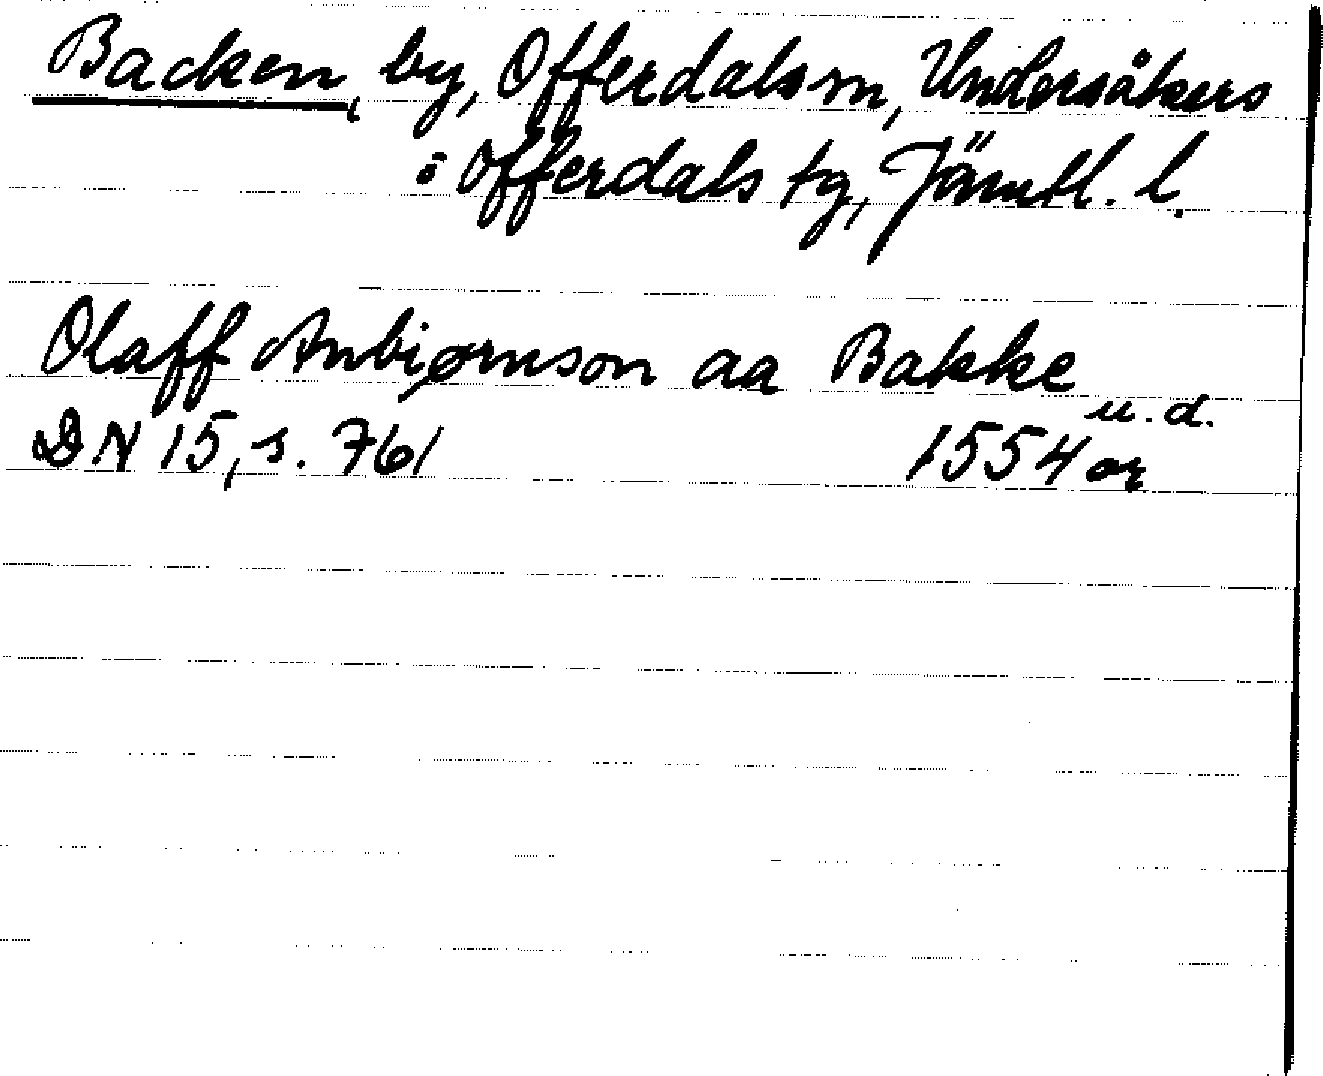 Backen, by, Offerdals sn, Undersåkers
o Offerdals tg, Jämtl. l.
Olaff Anbiørnson aa Bakke
u.d.
DN 15, s. 761 1554 or